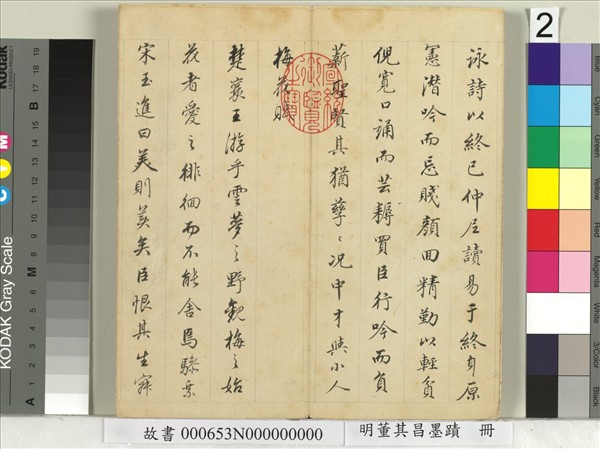 詠詩以終已仲尼讀易于終身原
憲潛吟而忘賤顏回精勤以輕貧
倪寬口誦而芸耨買臣行吟而負
薪聖賢其猶孳〻況中才與小人
梅花賦
楚襄王游乎雲夢之野觀梅之始
花者愛之徘徊而不能舍焉驂乘
宋玉進曰美則美矣臣恨其生寂
嘉慶御覽之寶
2
KODAK Gray Scale
Kodak
LICENSED PRODUCT
C
Y
M
A 1 2 3 4 5 6 M 8 9 10 11 12 13 14 15 B 17 18 19
Blue
Cyan
Green
Yellow
Red
Magenta
White
3/Color
Black
故書 000653N000000000
明董其昌墨蹟 冊